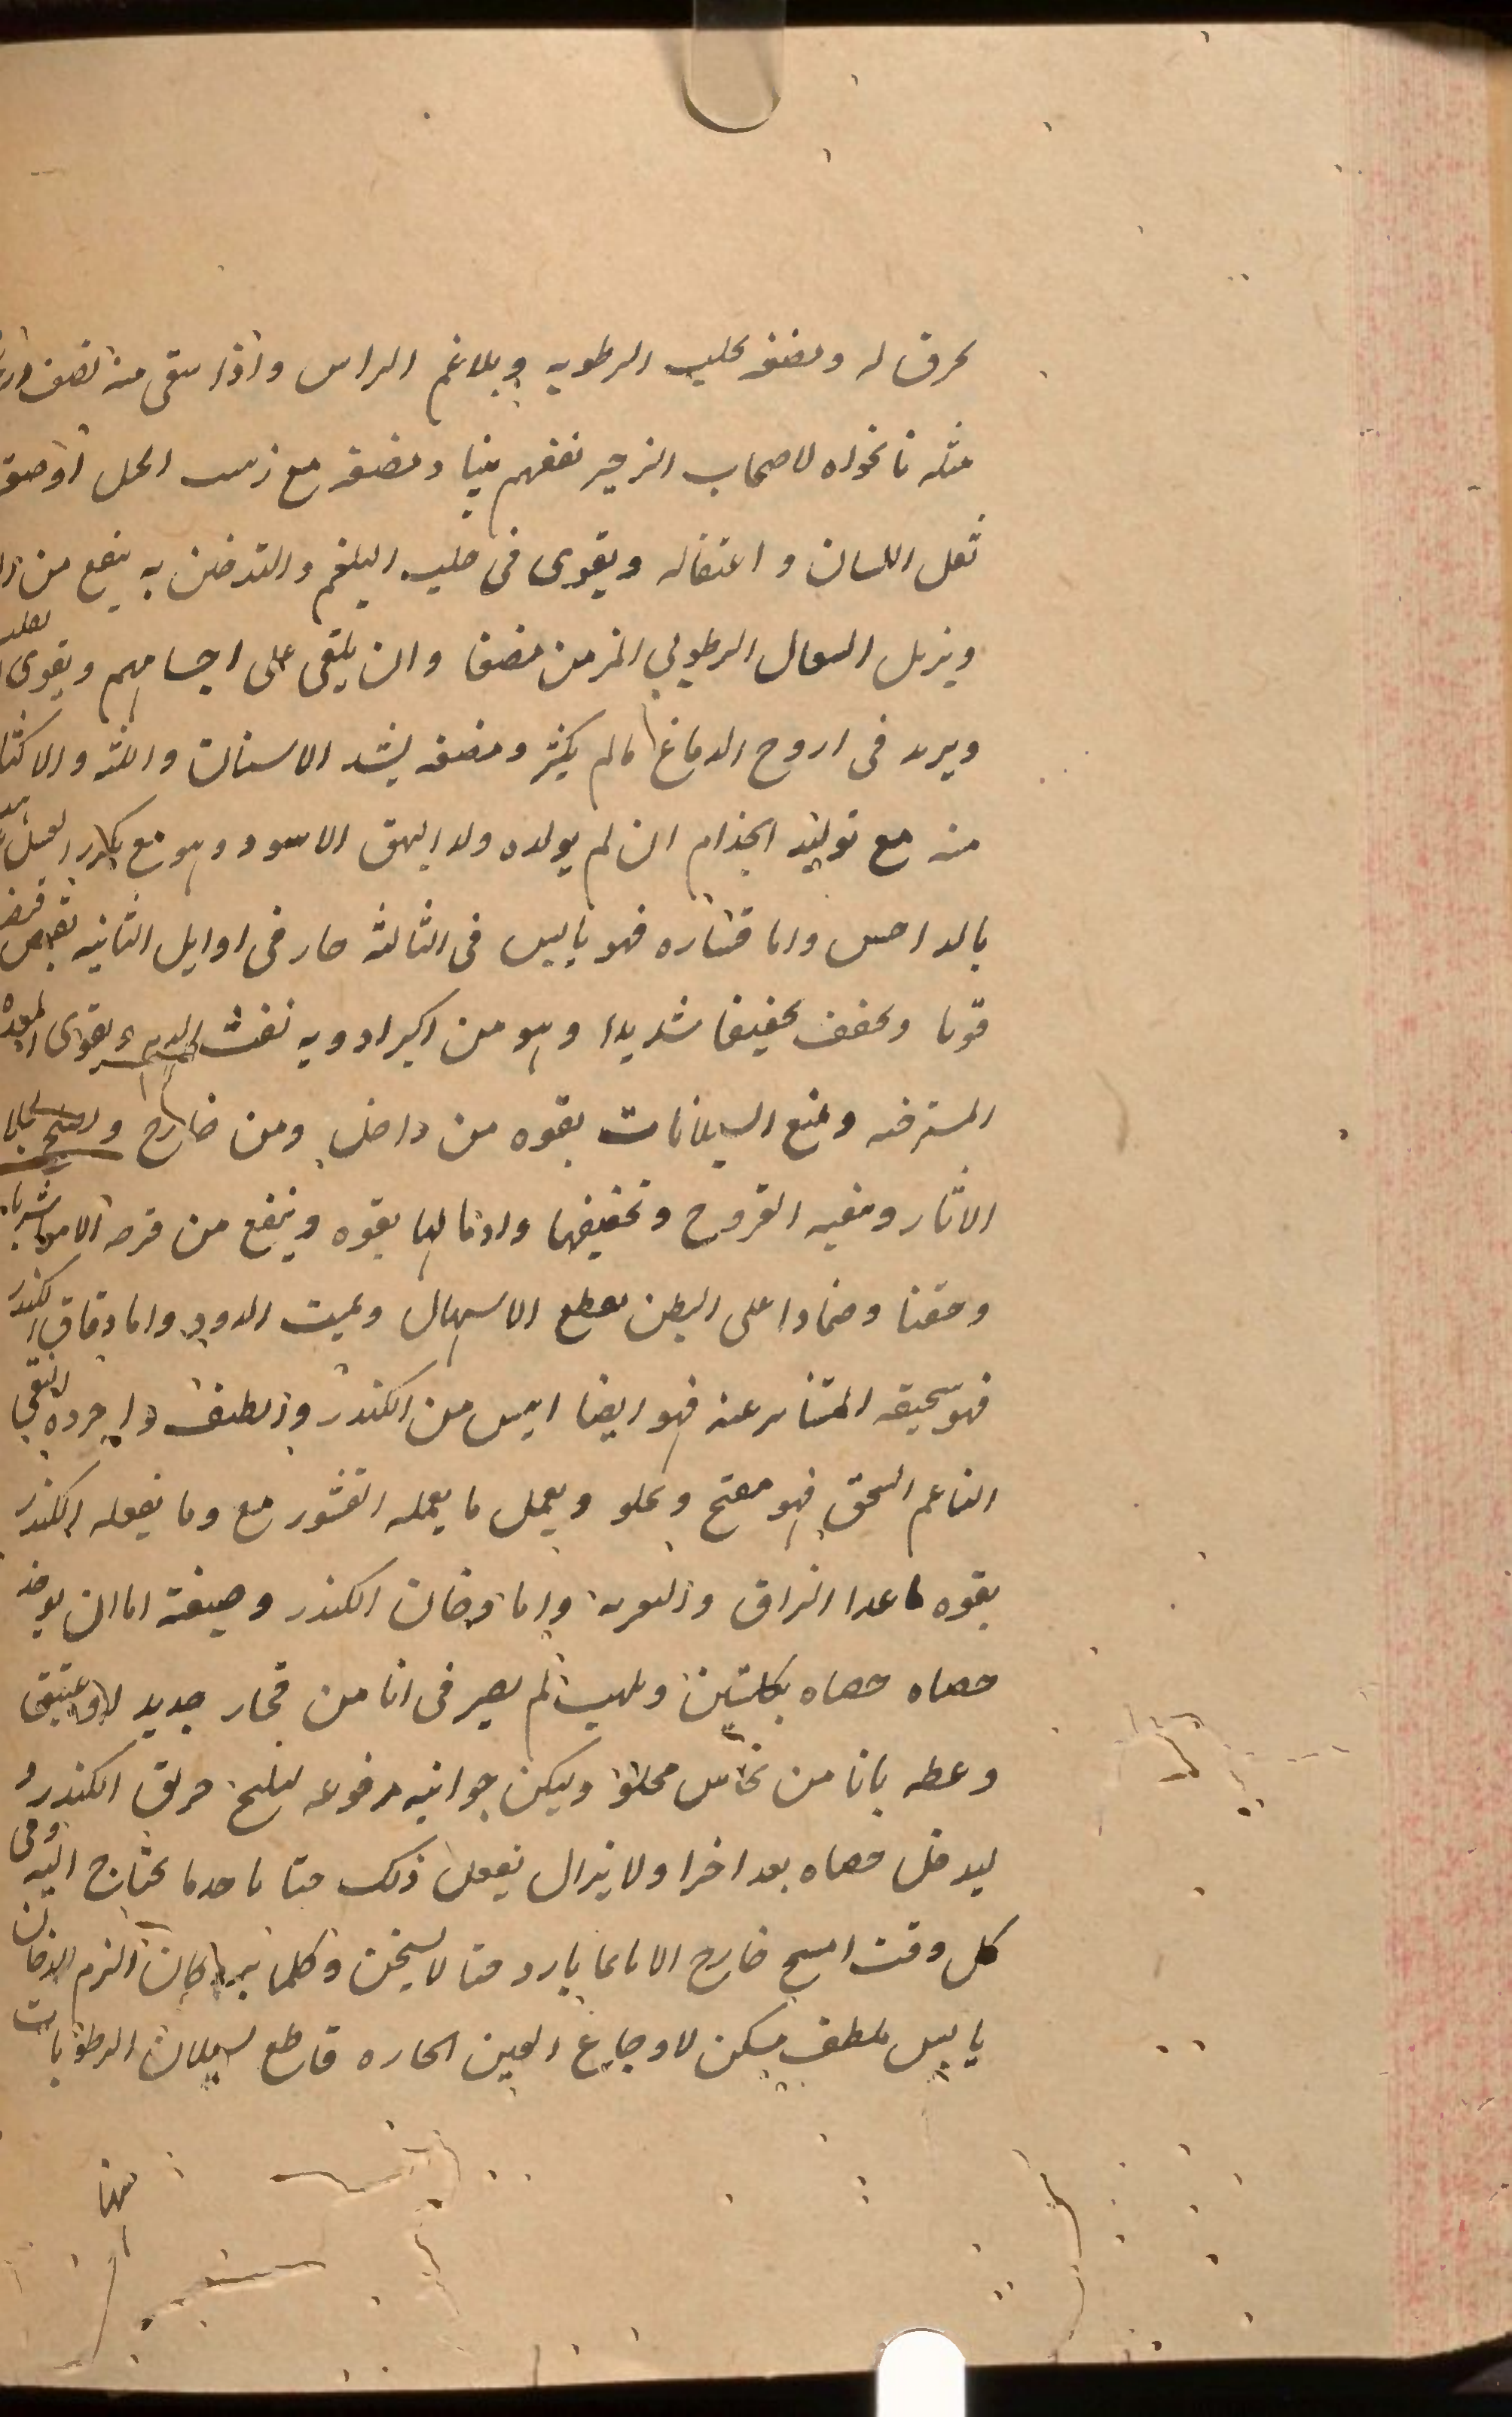 محرق له ومضغه يجلب الرطوبه وبلاغم الراس واذا سقى منه نصف
مثله نانخواه لاصحاب الزحير نفعهم بينا ومضغه مع زبيب الجبل او صعتر
ثقل اللسان واعتقاله ويقوى فى جلب البلغم والتدخن به ينفع من
ويزيل السعال الرطوبى المزمن مضغا وان يلقى على اجسامهم ويقوى القلب
ويزيد فى اروح الدماغ مالم يكثر ومضغه يشد الاسنان واللثه والاكثار
منه مع توليد الجذام ان لم يولده ولد البهق الاسود وهو مع
بالداحس واما قشاره فهو يابس فى الثالثه حار فى اوايل الثانيه يقبض قبضا
قويا ويجفف تجفيفا شديدا وهو من اكبر ادويه نفث الدم ويقوى المعده
المسترخيه ويمنع السيلانات بقوه من داخل ومن خارج
الاثار وينقيه القروح وتجفيفها وادمالها بقوه وينفع من قرحه الامعا شربا
وحقنا وضمادا على البطن يقطع الاسهال ويميت الدود واما دقاق الكندر
فهو سحيقه المتناثر عنه فهو ايضا ايبس من الكندر والطف واجوده النقي
الناعم السحق فهو مفتح ويجلو ويعمل ما يعمله القشور مع وما يفعله الكندر
بقوه ماعدا الزاق والتعريه واما دخان الكندر وصفته اما ان يوخذ
حصاه حصاه بكلبتين ويلهب ثم يصير فى انا من فخار جديد لا وعتيق
وغطه بانا من نحاس مجلوا وليكن جوانبه مرفوعه
ليدخل حصاه بعد اخرا ولا يزال يفعل ذلك حتا ياخد ما تحتاج اليه وفى
كل وقت امسح خارج الانا بما بارد حتا لا يسخن وكلما برد كان الزم للدخان
يابس ملطف مسكن لاوجاع العين الحاره قاطع لسيلان الرطوبات
منها